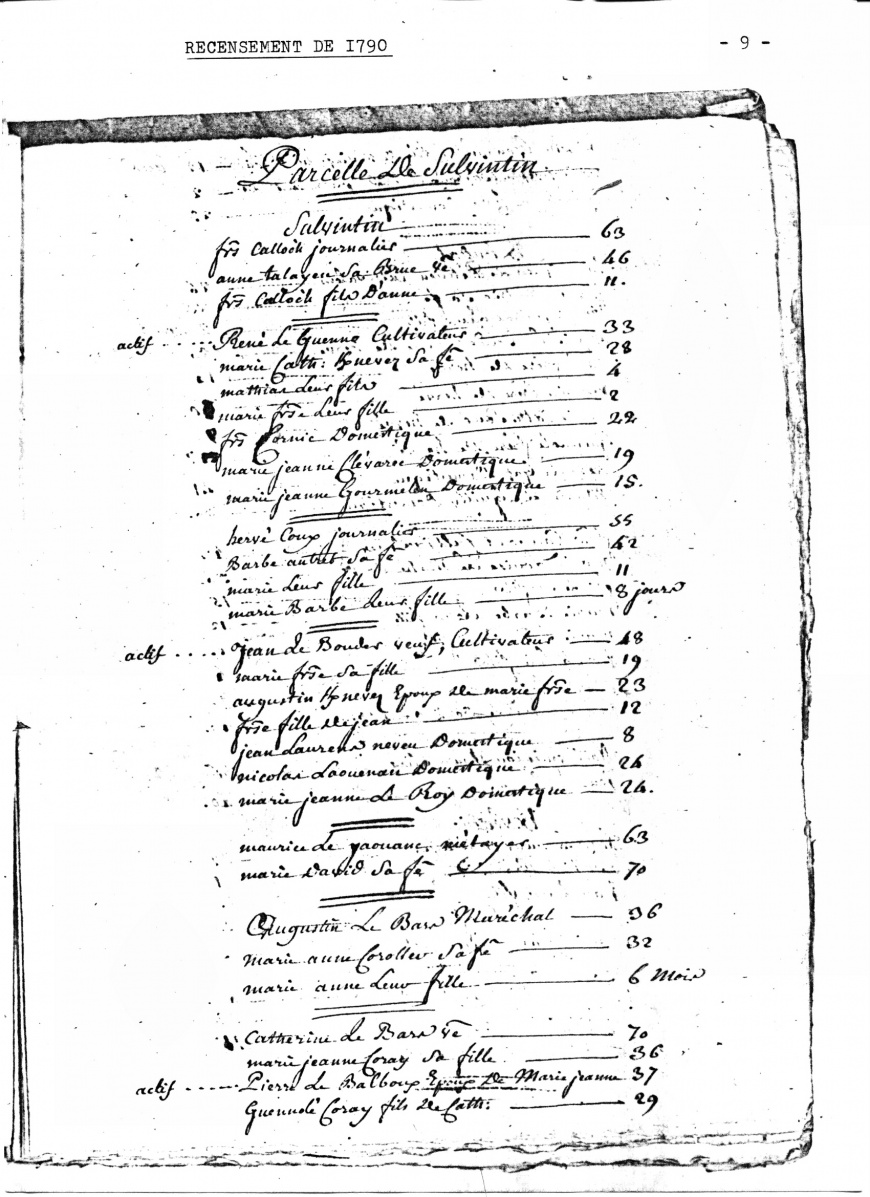 RECENSEMENT DE 1790
- 9 -
Parcelle de Sulvintin
Sulvintin
frs Calloch journalier 63
anne talayen sa Brue ve 46
frs Calloch fils D'anne 11.
actif ..... René Le Guenno Cultivateur 33
marie Cath: Knevez Sa fe 28
mathias Leur fils 4
marie frse Leur fille 2
frs Cornic Domestique 22
marie jeanne Clévarec Domestique 19
marie jeanne Gourmelen Domestique 15.
hervé Coux journalier 55
Barbe autret Sa fe 42
marie Leur fille 11
marie Barbe Leur fille 8 jours
actif ..... jean Le Bouder veuf, Cultivateur 48
marie frse Sa fille 19
augustin Knevez Epoux de marie frse 23
frse fille de jean 12
jean Laurens neveu Domestique 8
nicolas Laouenan Domestique 24
marie jeanne Le Roy Domestique 24.
maurice Le yaouanc métayer 63
marie David Sa fe 70
Augustin Le Bars Maréchal 36
marie anne Coroller Sa fe 32
marie anne Leur fille 6 Mois
Catherine Le Bars ve 70
marie jeanne Coray Sa fille 36
actif ..... Pierre Le Balboux Epoux De Marie jeanne 37
Guennolé Coray fils de Cath: 29